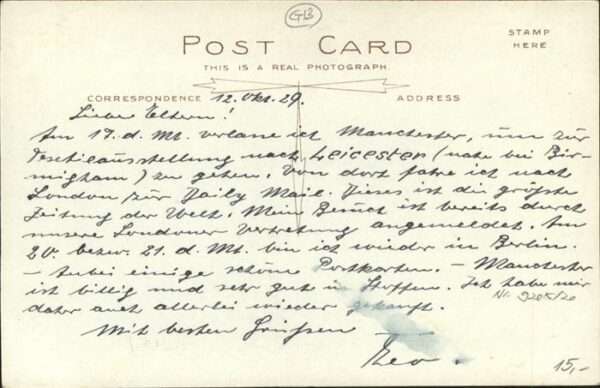 GB
POST CARD
STAMP
HERE
THIS IS A REAL PHOTOGRAPH.
CORRESPONDENCE 12. Okt. 29. ADDRESS
Liebe Eltern!
Am 17. d. Mt. verlasse ich Manchester, um zur
Textilausstellung nach Leicester (nahe bei Bir-
migham) zu gehen. Von dort fahre ich nach
London zur Daily Mail. Dieses ist die größte
Zeitung der Welt. Mein Besuch ist bereits durch
unsere Londoner Vertretung angemeldet. Am
20. bezw. 21. d. Mt. bin ich wieder in Berlin.
- Anbei einige schöne Postkarten. - Manchester
ist billig und sehr gut in Stoffen. Ich habe mir
daher auch allerlei wieder gekauft.
Mit besten Grüssen
Leo.
15,-